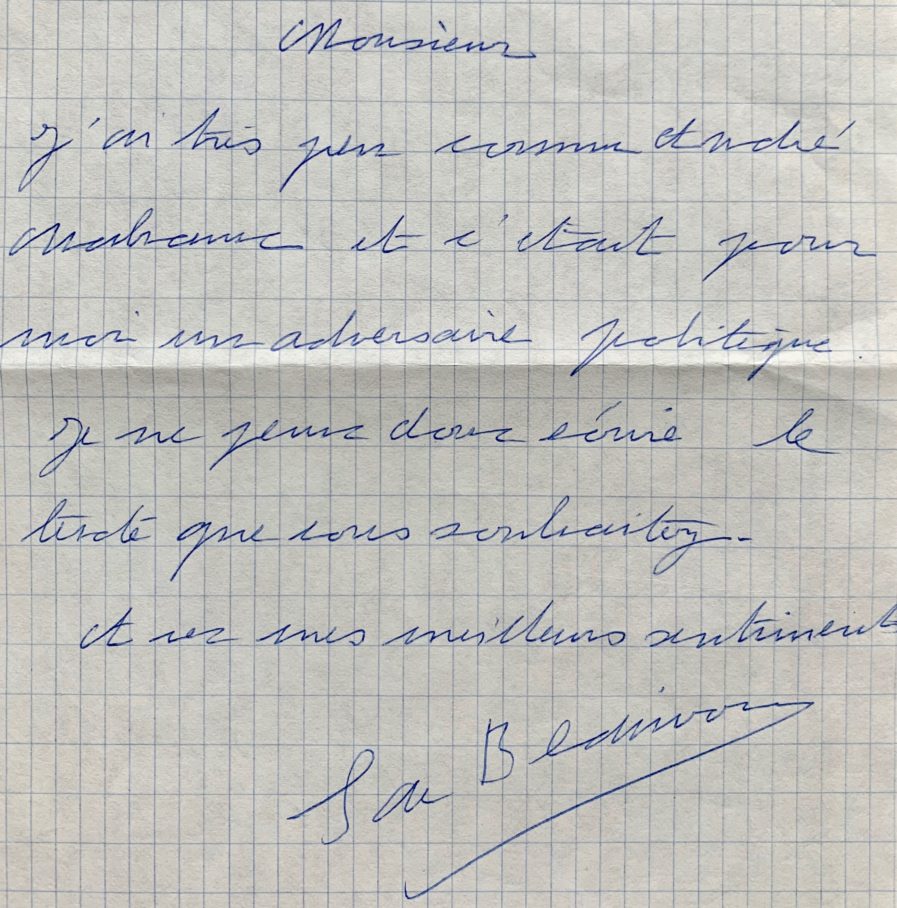 Monsieur
j'ai très peu connu André
Malraux et c'était pour
moi un adversaire politique.
Je ne peux donc écrire le
texte que vous souhaitez.
Avec mes meilleurs sentiments
S de Beauvoir